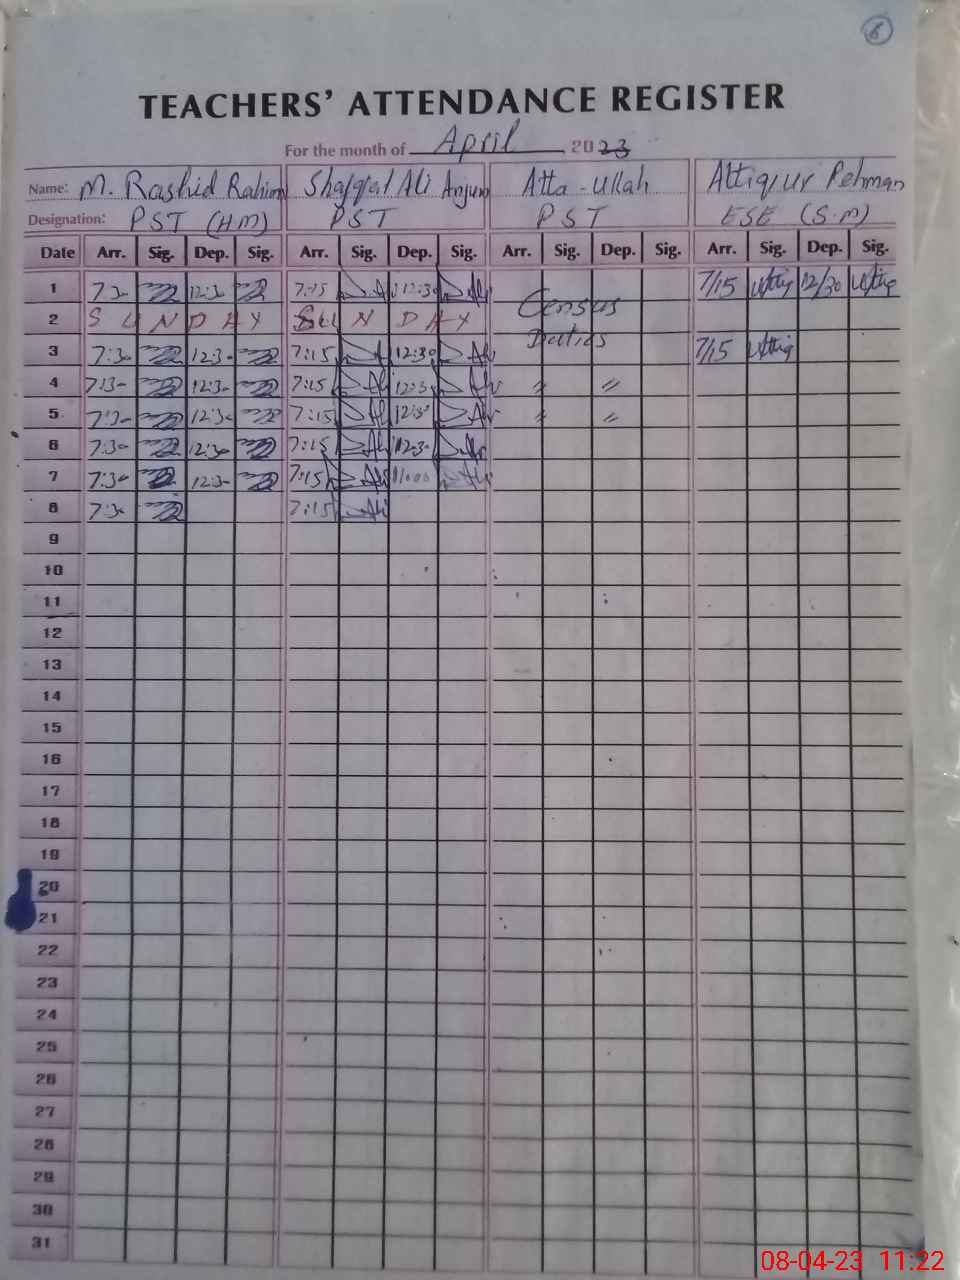 6
TEACHERS' ATTENDANCE REGISTER
For the month of April 2023
Name: M. Rashid Rahim Shafqat Ali Anjum Atta-Ullah Attiqur Rehman
Designation: PST (HM) PST PST ESE (S.M)
Date Arr. Sig. Dep. Sig. Arr. Sig. Dep. Sig. Arr. Sig. Dep. Sig. Arr. Sig. Dep. Sig.
1 7:30 12:30 7:15 12:30 Census 7/15 12/30
2 SUNDAY SUNDAY
3 7:30 12:30 7:15 12:30 Duties 7/15
4 7:30 12:30 7:15 12:30 〃 〃
5 7:30 12:30 7:15 12:30 〃 〃
6 7:30 12:30 7:15 12:30
7 7:30 12:30 7:15 11:00
8 7:30 7:15
9
10
11
12
13
14
15
16
17
18
19
20
21
22
23
24
25
26
27
28
29
30
31
08-04-23 11:22